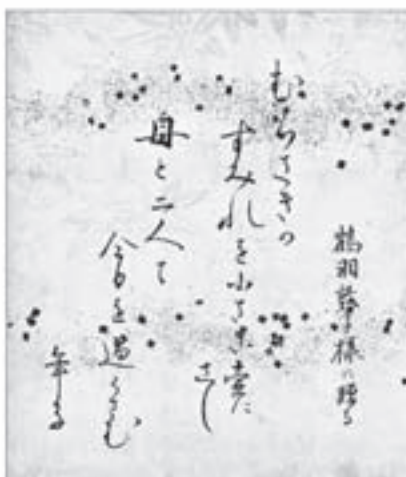 鶴羽 様に贈る
むらさきの
すみれを小さき壺に
さし
母と二人て
今日を過さむ